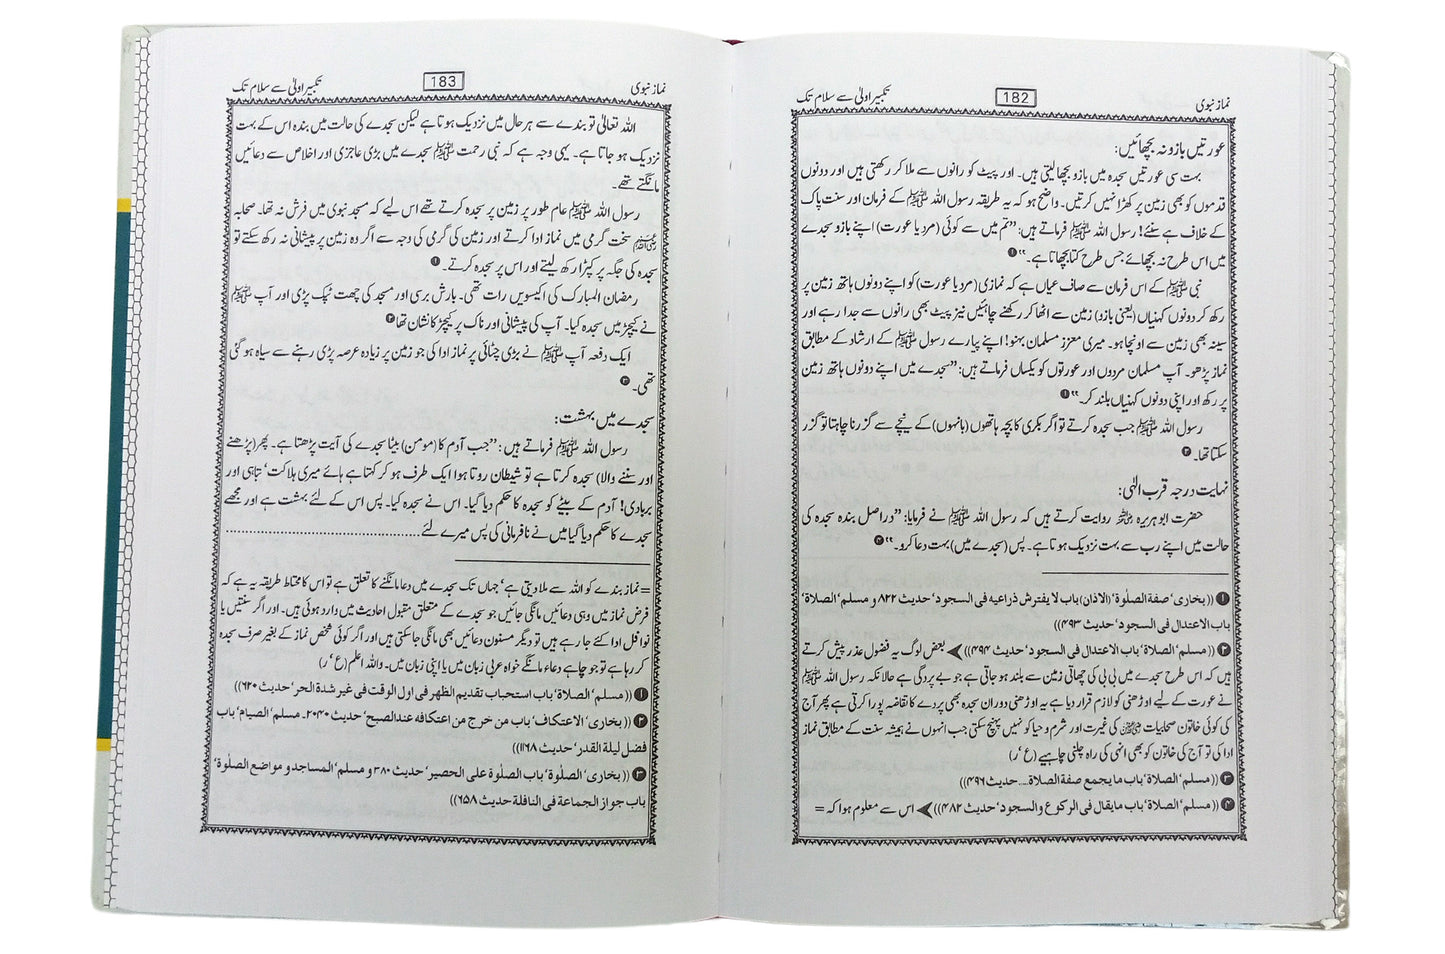 نماز نبوی 182 تکبیر اولیٰ سے سلام تک
عورتیں بازو نہ بچھائیں:
بہت سی عورتیں سجدہ میں بازو بچھا لیتی ہیں۔ اور پیٹ کو رانوں سے ملا کر رکھتی ہیں اور دونوں
قدموں کو بھی زمین پر کھڑا نہیں کرتیں۔ واضح ہو کہ یہ طریقہ رسول اللہ ﷺ کے فرمان اور سنت پاک
کے خلاف ہے سنئے! رسول اللہ ﷺ فرماتے ہیں: ”تم میں سے کوئی (مرد یا عورت) اپنے بازو سجدے
میں اس طرح نہ بچھائے جس طرح کتا بچھاتا ہے۔“ ❶
نبی ﷺ کے اس فرمان سے صاف عیاں ہے کہ نمازی (مرد یا عورت) کو اپنے دونوں ہاتھ زمین پر
رکھ کر دونوں کہنیاں (یعنی بازو) زمین سے اٹھا کر رکھنے چاہئیں نیز پیٹ بھی رانوں سے جدا رہے اور
سینہ بھی زمین سے اونچا ہو۔ میری معزز مسلمان بہنو! اپنے پیارے رسول ﷺ کے ارشاد کے مطابق
نماز پڑھو۔ آپ مسلمان مردوں اور عورتوں کو یکساں فرماتے ہیں: ”سجدے میں اپنے دونوں ہاتھ زمین
پر رکھ اور اپنی دونوں کہنیاں بلند کر۔“ ❷
رسول اللہ ﷺ جب سجدہ کرتے تو اگر بکری کا بچہ ہاتھوں (بانہوں) کے نیچے سے گزرنا چاہتا تو گزر
سکتا تھا۔ ❸
نہایت درجہ قرب الٰہی:
حضرت ابو ہریرہ رضی اللہ عنہ روایت کرتے ہیں کہ رسول اللہ ﷺ نے فرمایا: ”دراصل بندہ سجدہ کی
حالت میں اپنے رب سے بہت نزدیک ہوتا ہے۔ پس (سجدے میں) بہت دعا کرو۔“ ❹
❶ ((بخاری، صفة الصلوٰة، (الاذان) باب لا یفترش ذراعیه فی السجود، حدیث ۸۲۲ و مسلم، الصلاة،
باب الاعتدال فی السجود، حدیث ۴۹۳))
❷ ((مسلم، الصلاة، باب الاعتدال فی السجود، حدیث ۴۹۴)) ◄ بعض لوگ یہ فضول عذر پیش کرتے
ہیں کہ اس طرح سجدے میں بی بی کی چھاتی زمین سے بلند ہو جاتی ہے جو بے پردگی ہے حالانکہ رسول اللہ ﷺ
نے عورت کے لیے اوڑھنی کو لازم قرار دیا ہے یہ اوڑھنی دوران سجدہ بھی پردے کا تقاضہ پورا کرتی ہے پھر آج
کی کوئی خاتون صحابیات کی غیرت اور شرم و حیا کو نہیں پہنچ سکتی جب انہوں نے ہمیشہ سنت کے مطابق نماز
ادا کی تو آج کی خاتون کو بھی انہی کی راہ چلنی چاہیے (ع، ر)
❸ ((مسلم، الصلاة، باب ما یجمع صفة الصلاة.... حدیث ۴۹۶))
❹ ((مسلم، الصلاة، باب مایقال فی الرکوع والسجود، حدیث ۴۸۲)) ◄ اس سے معلوم ہوا کہ =
نماز نبوی 183 تکبیر اولیٰ سے سلام تک
اللہ تعالیٰ تو بندے سے ہر حال میں نزدیک ہوتا ہے لیکن سجدے کی حالت میں بندہ اس کے بہت
نزدیک ہو جاتا ہے۔ یہی وجہ ہے کہ نبی رحمت ﷺ سجدے میں بڑی عاجزی اور اخلاص سے دعائیں
مانگتے تھے۔
رسول اللہ ﷺ عام طور پر زمین پر سجدہ کرتے تھے اس لیے کہ مسجد نبوی میں فرش نہ تھا۔ صحابہ
سخت گرمی میں نماز ادا کرتے اور زمین کی گرمی کی وجہ سے اگر وہ زمین پر پیشانی نہ رکھ سکتے تو
سجدہ کی جگہ پر کپڑا رکھ لیتے اور اس پر سجدہ کرتے۔ ❶
رمضان المبارک کی اکیسویں رات تھی۔ بارش برسی اور مسجد کی چھت ٹپک پڑی اور آپ ﷺ
نے کیچڑ میں سجدہ کیا۔ آپ کی پیشانی اور ناک پر کیچڑ کا نشان تھا ❷
ایک دفعہ آپ ﷺ نے بڑی چٹائی پر نماز ادا کی جو زمین پر زیادہ عرصہ پڑی رہنے سے سیاہ ہو گئی
تھی۔ ❸
سجدے میں بہشت:
رسول اللہ ﷺ فرماتے ہیں: ”جب آدم کا (مومن) بیٹا سجدے کی آیت پڑھتا ہے۔ پھر (پڑھنے
اور سننے والا) سجدہ کرتا ہے تو شیطان روتا ہوا ایک طرف ہو کر کہتا ہے ہائے میری ہلاکت، تباہی اور
بربادی! آدم کے بیٹے کو سجدہ کا حکم دیا گیا۔ اس نے سجدہ کیا۔ پس اس کے لئے بہشت ہے اور مجھے
سجدے کا حکم دیا گیا میں نے نافرمانی کی پس میرے لئے........................
= نماز بندے کو اللہ سے ملا دیتی ہے، جہاں تک سجدے میں دعا مانگنے کا تعلق ہے تو اس کا محتاط طریقہ یہ ہے کہ
فرض نماز میں وہی دعائیں مانگی جائیں جو سجدے کے متعلق مقبول احادیث میں وارد ہوئی ہیں۔ اور اگر سنتیں یا
نوافل ادا کئے جا رہے ہیں تو دیگر مسنون دعائیں بھی مانگی جا سکتی ہیں اور اگر کوئی شخص نماز کے بغیر صرف سجدہ
کر رہا ہے تو جو چاہے دعاء مانگے خواہ عربی زبان میں یا اپنی زبان میں۔ واللہ اعلم (ع، ر)
❶ ((مسلم، الصلاة، باب استحباب تقدیم الظهر فی اول الوقت فی غیر شدة الحر، حدیث ۶۲۰))
❷ ((بخاری، الاعتکاف، باب من خرج من اعتکافه عندالصبح، حدیث ۲۰۴۰۔ مسلم، الصیام، باب
فضل لیلة القدر، حدیث ۱۱۶۸))
❸ ((بخاری، الصلوٰة، باب الصلوٰة علی الحصیر، حدیث ۳۸۰ و مسلم، المساجد و مواضع الصلوٰة،
باب جواز الجماعة فی النافلة حدیث ۶۵۸))